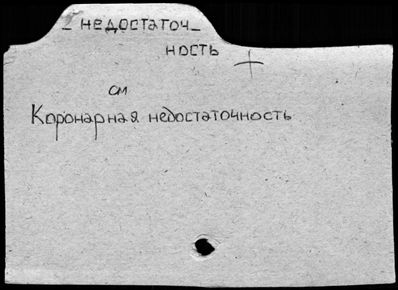 – недостаточ–
ность
см
Коронарная недостаточность